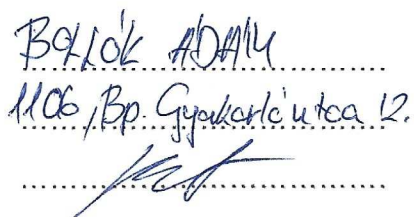 BOLLÓK ÁDÁM
1106, Bp. Gyakorló utca 12.